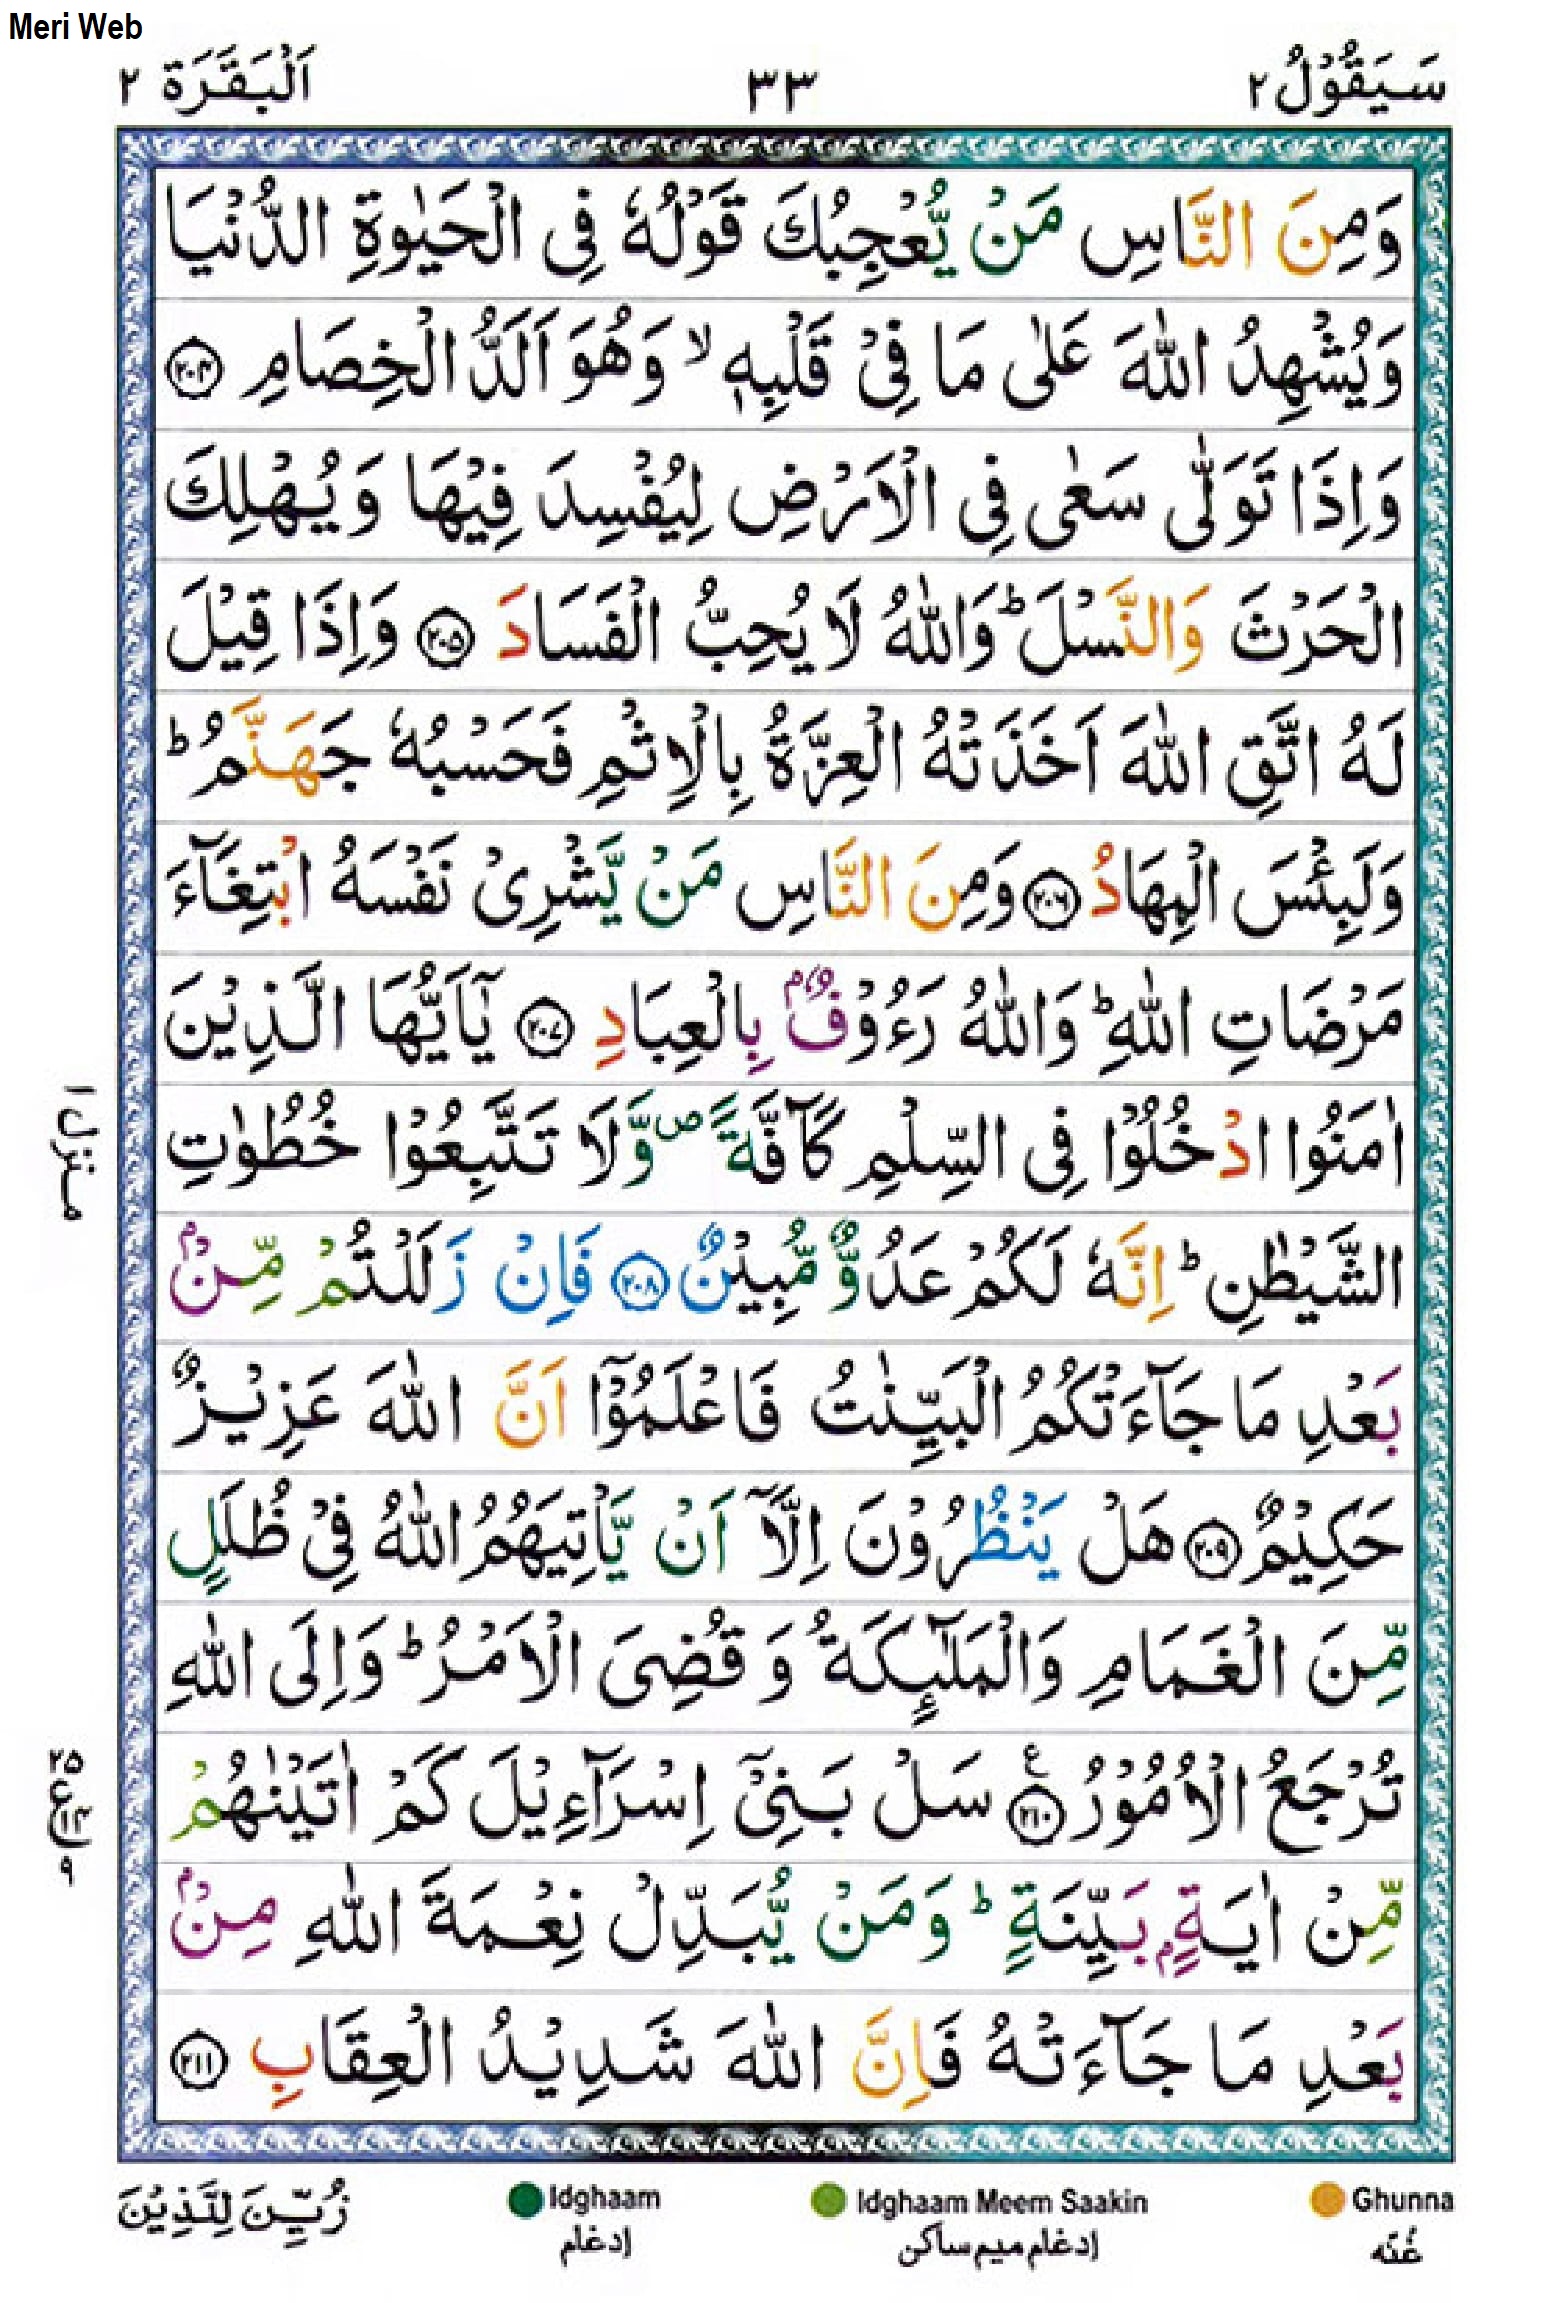 Meri Web
سَيَقُوْلُ ٢ ٣٣ اَلْبَقَرَة ٢
وَمِنَ النَّاسِ مَنْ يُّعْجِبُكَ قَوْلُهٗ فِى الْحَيٰوةِ الدُّنْيَا
وَيُشْهِدُ اللّٰهَ عَلٰى مَا فِىْ قَلْبِهٖ ۙ وَهُوَ اَلَدُّ الْخِصَامِ ﴿٢٠٤﴾
وَاِذَا تَوَلّٰى سَعٰى فِى الْاَرْضِ لِيُفْسِدَ فِيْهَا وَيُهْلِكَ
الْحَرْثَ وَالنَّسْلَ ؕ وَاللّٰهُ لَا يُحِبُّ الْفَسَادَ ﴿٢٠٥﴾ وَاِذَا قِيْلَ
لَهُ اتَّقِ اللّٰهَ اَخَذَتْهُ الْعِزَّةُ بِالْاِثْمِ فَحَسْبُهٗ جَهَنَّمُ ؕ
وَلَبِئْسَ الْمِهَادُ ﴿٢٠٦﴾ وَمِنَ النَّاسِ مَنْ يَّشْرِىْ نَفْسَهُ ابْتِغَآءَ
مَرْضَاتِ اللّٰهِ ؕ وَاللّٰهُ رَءُوْفٌۢ بِالْعِبَادِ ﴿٢٠٧﴾ يٰٓاَيُّهَا الَّذِيْنَ
اٰمَنُوا ادْخُلُوْا فِى السِّلْمِ كَآفَّةً ۖ وَّلَا تَتَّبِعُوْا خُطُوٰتِ
الشَّيْطٰنِ ؕ اِنَّهٗ لَكُمْ عَدُوٌّ مُّبِيْنٌ ﴿٢٠٨﴾ فَاِنْ زَلَلْتُمْ مِّنْۢ
بَعْدِ مَا جَآءَتْكُمُ الْبَيِّنٰتُ فَاعْلَمُوْٓا اَنَّ اللّٰهَ عَزِيْزٌ
حَكِيْمٌ ﴿٢٠٩﴾ هَلْ يَنْظُرُوْنَ اِلَّآ اَنْ يَّاْتِيَهُمُ اللّٰهُ فِىْ ظُلَلٍ
مِّنَ الْغَمَامِ وَالْمَلٰٓئِكَةُ وَقُضِىَ الْاَمْرُ ؕ وَاِلَى اللّٰهِ
تُرْجَعُ الْاُمُوْرُ ﴿٢١٠﴾ ع سَلْ بَنِىْٓ اِسْرَآءِيْلَ كَمْ اٰتَيْنٰهُمْ
مِّنْ اٰيَةٍۢ بَيِّنَةٍ ؕ وَمَنْ يُّبَدِّلْ نِعْمَةَ اللّٰهِ مِنْۢ
بَعْدِ مَا جَآءَتْهُ فَاِنَّ اللّٰهَ شَدِيْدُ الْعِقَابِ ﴿٢١١﴾
منزل ١
٢٥ ع ٩
Ghunna Idghaam Meem Saakin Idghaam زُيِّنَ لِلَّذِيْنَ
غُنّه ادغام ميم ساكن ادغام